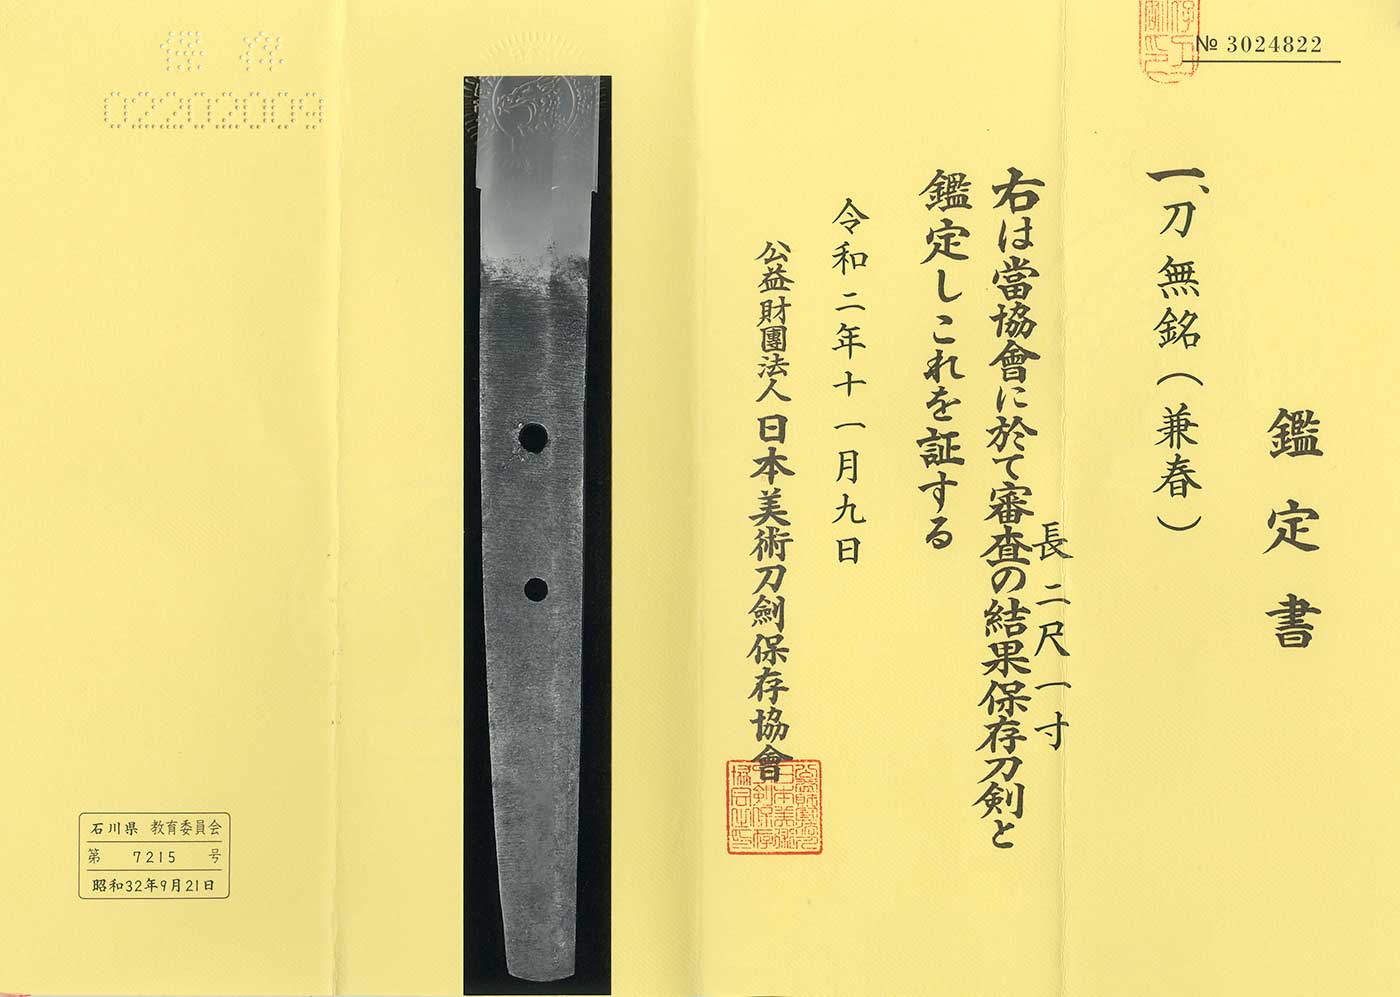 № 3024822
鑑定書
一、刀無銘（兼春）
長二尺一寸
右は當協會に於て審査の結果保存刀剣と
鑑定しこれを証する
令和二年十一月九日
公益財團法人日本美術刀劍保存協會
保存
02202009
石川県 教育委員会
第 7215 号
昭和32年9月21日